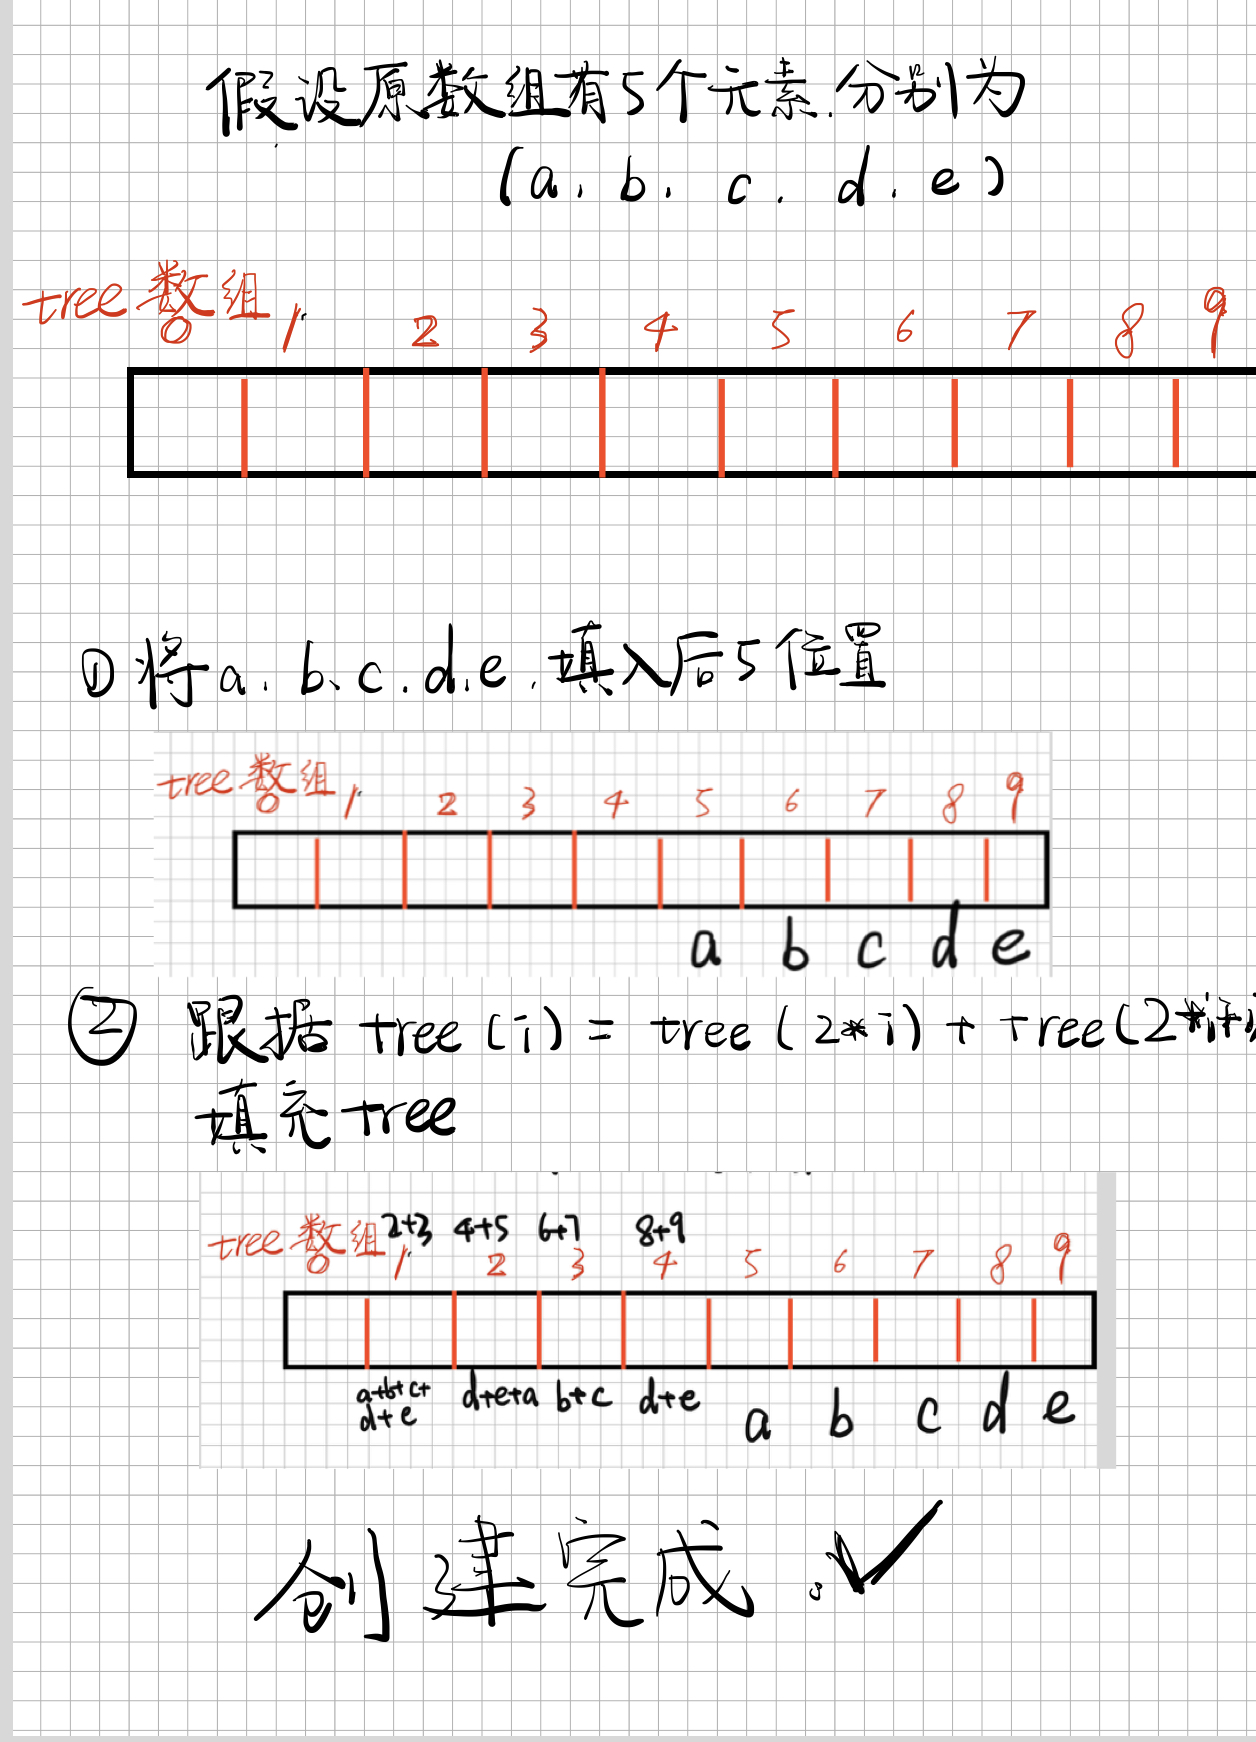 假设原数组有5个元素.分别为
(a. b. c. d. e)
tree 数组
0 1 2 3 4 5 6 7 8 9
① 将a. b、c. d. e. 填入后5位置
tree 数组
0 1 2 3 4 5 6 7 8 9
a b c d e
② 跟据 tree(i) = tree(2*i) + tree(2*i+
填充tree
2+3 4+5 6+7 8+9
tree 数组
0 1 2 3 4 5 6 7 8 9
a+b+c+ d+e+a b+c d+e a b c d e
d+e
创建完成。✓